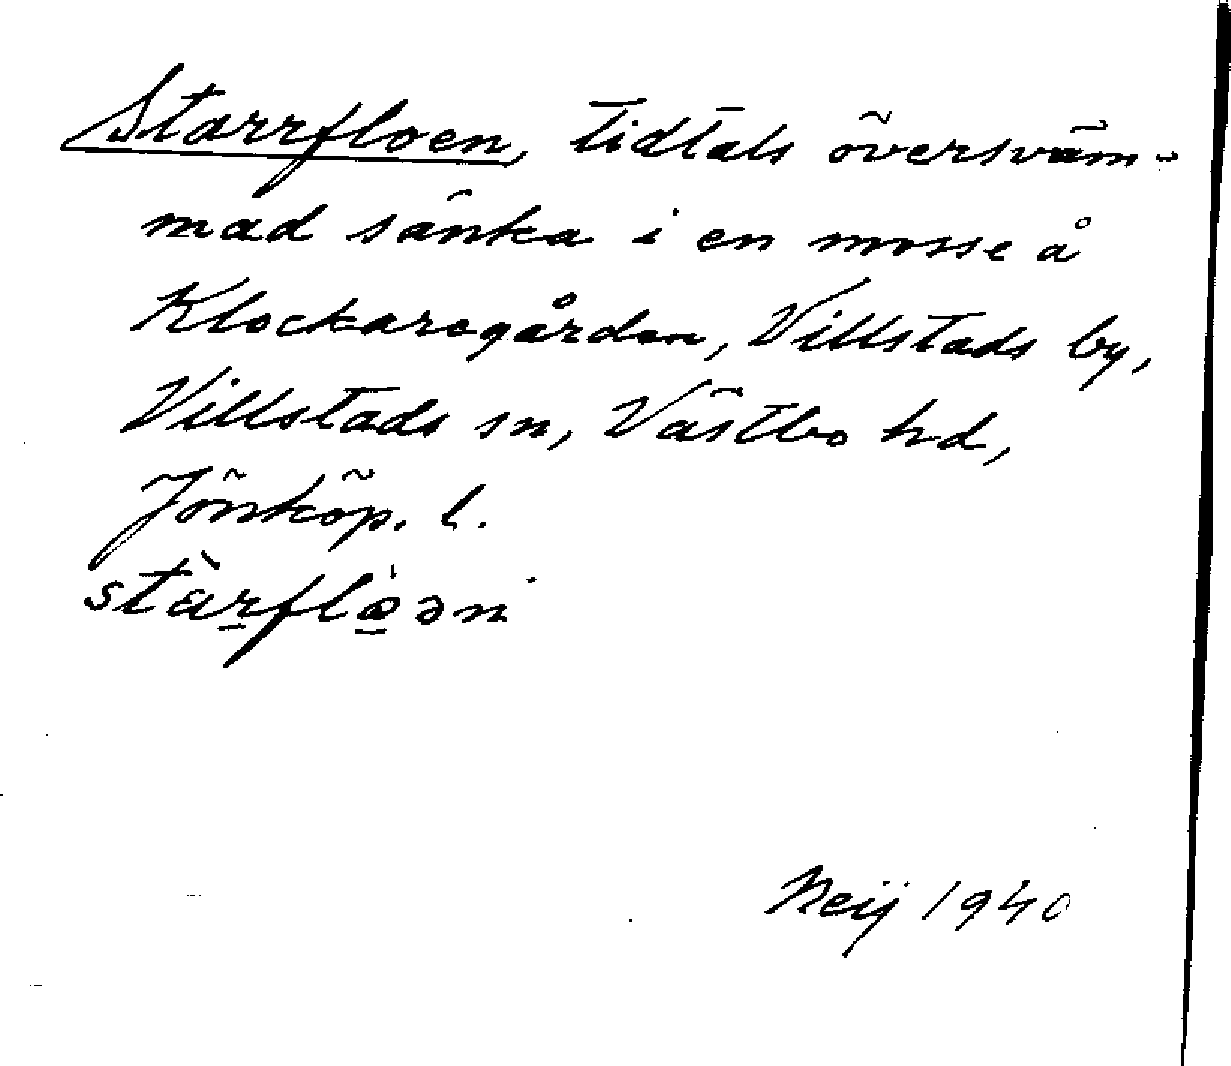 Starrfloen, tidtals översväm-
mad sänka i en mosse å
Klockaregården, Villstads by,
Villstads sn, Västbo hd,
Jönköp. l.
Neij 1940